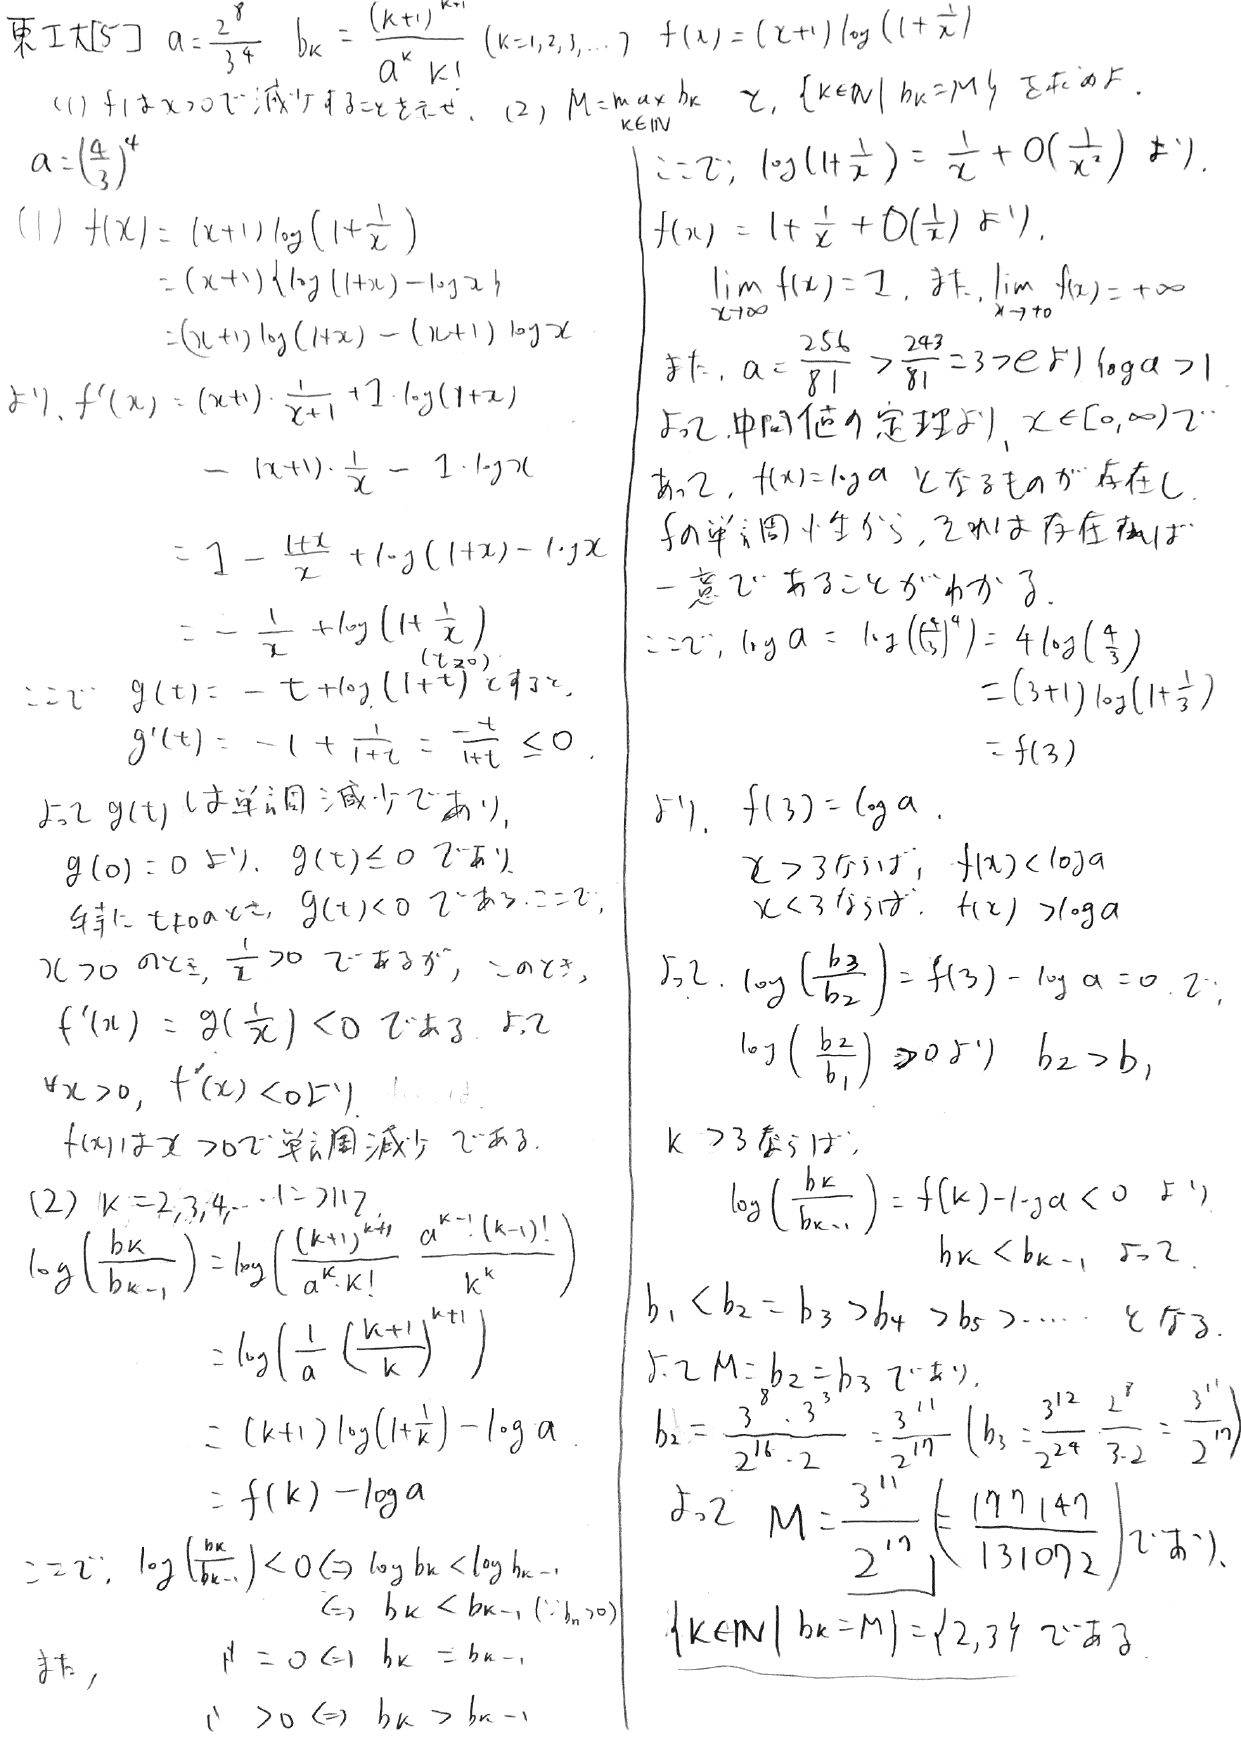 東工大[5] a=2^8/3^4 b_k = (k+1)^{k+1}/(a^k k!) (k=1,2,3,…) f(x)=(x+1)log(1+1/x)
(1) fはx>0で減少することを示せ. (2) M=max_{k∈IN} b_k と, {k∈IN| b_k=M} を求めよ.
a=(4/3)^4
(1) f(x) = (x+1)log(1+1/x)
= (x+1){log(1+x)-logx}
=(x+1)log(1+x) - (x+1) logx
より, f'(x) = (x+1)・1/(x+1) + 1・log(1+x)
- (x+1)・1/x - 1・logx
= 1 - (1+x)/x + log(1+x) - logx
= - 1/x + log(1+1/x)
ここで g(t) = - t + log(1+t) (t≧0) とすると,
g'(t) = -1 + 1/(1+t) = -t/(1+t) ≤ 0.
よって g(t) は単調減少であり,
g(0)=0 より, g(t)≤0 であり
特に t≠0のとき, g(t)<0 である. ここで,
x>0 のとき, 1/x>0 であるが, このとき,
f'(x) = g(1/x) <0 である. よって
∀x>0, f'(x)<0より
f(x)はx>0で単調減少である.
(2) k=2,3,4,… について
log(b_k/b_{k-1}) = log((k+1)^{k+1}/(a^k・k!) a^{k-1}・(k-1)!/k^k)
= log(1/a ((k+1)/k)^{k+1})
= (k+1)log(1+1/k) - log a.
= f(k) - log a
ここで, log(b_k/b_{k-1}) <0 ⇔ log b_k < log b_{k-1}
⇔ b_k < b_{k-1} (∵b_n>0)
また, 〃 =0 ⇔ b_k = b_{k-1}
〃 >0 ⇔ b_k > b_{k-1}
ここで, log(1+1/x) = 1/x + O(1/x²) より.
f(x) = 1+1/x+O(1/x) より,
lim_{x→∞} f(x)=1, また, lim_{x→+0} f(x)=+∞
また, a=256/81 > 243/81 =3>e より log a >1
よって, 中間値の定理より, x∈[0,∞)で
あって, f(x)=log a となるものが存在し.
fの単調性から, それは存在すれば
一意であることがわかる.
ここで, log a = log((4/3)^4) = 4log(4/3)
=(3+1)log(1+1/3)
= f(3)
より, f(3)=log a.
x>3ならば, f(x)<log a
x<3ならば, f(x)>log a
よって, log(b_3/b_2) = f(3) - log a =0. で,
log(b_2/b_1) >0より b_2>b_1
k>3ならば,
log(b_k/b_{k-1}) = f(k)-log a <0 より
b_k<b_{k-1} よって.
b_1<b_2=b_3>b_4>b_5>…… となる.
よって M=b_2=b_3 であり,
b_2 = 3^8・3^3/(2^16・2) = 3^11/2^17 (b_3 = 3^12/2^24 2^8/(3・2) = 3^11/2^17)
よって M= 3^11/2^17 (= 177147/131072) であり,
{k∈IN| b_k=M}={2,3} である